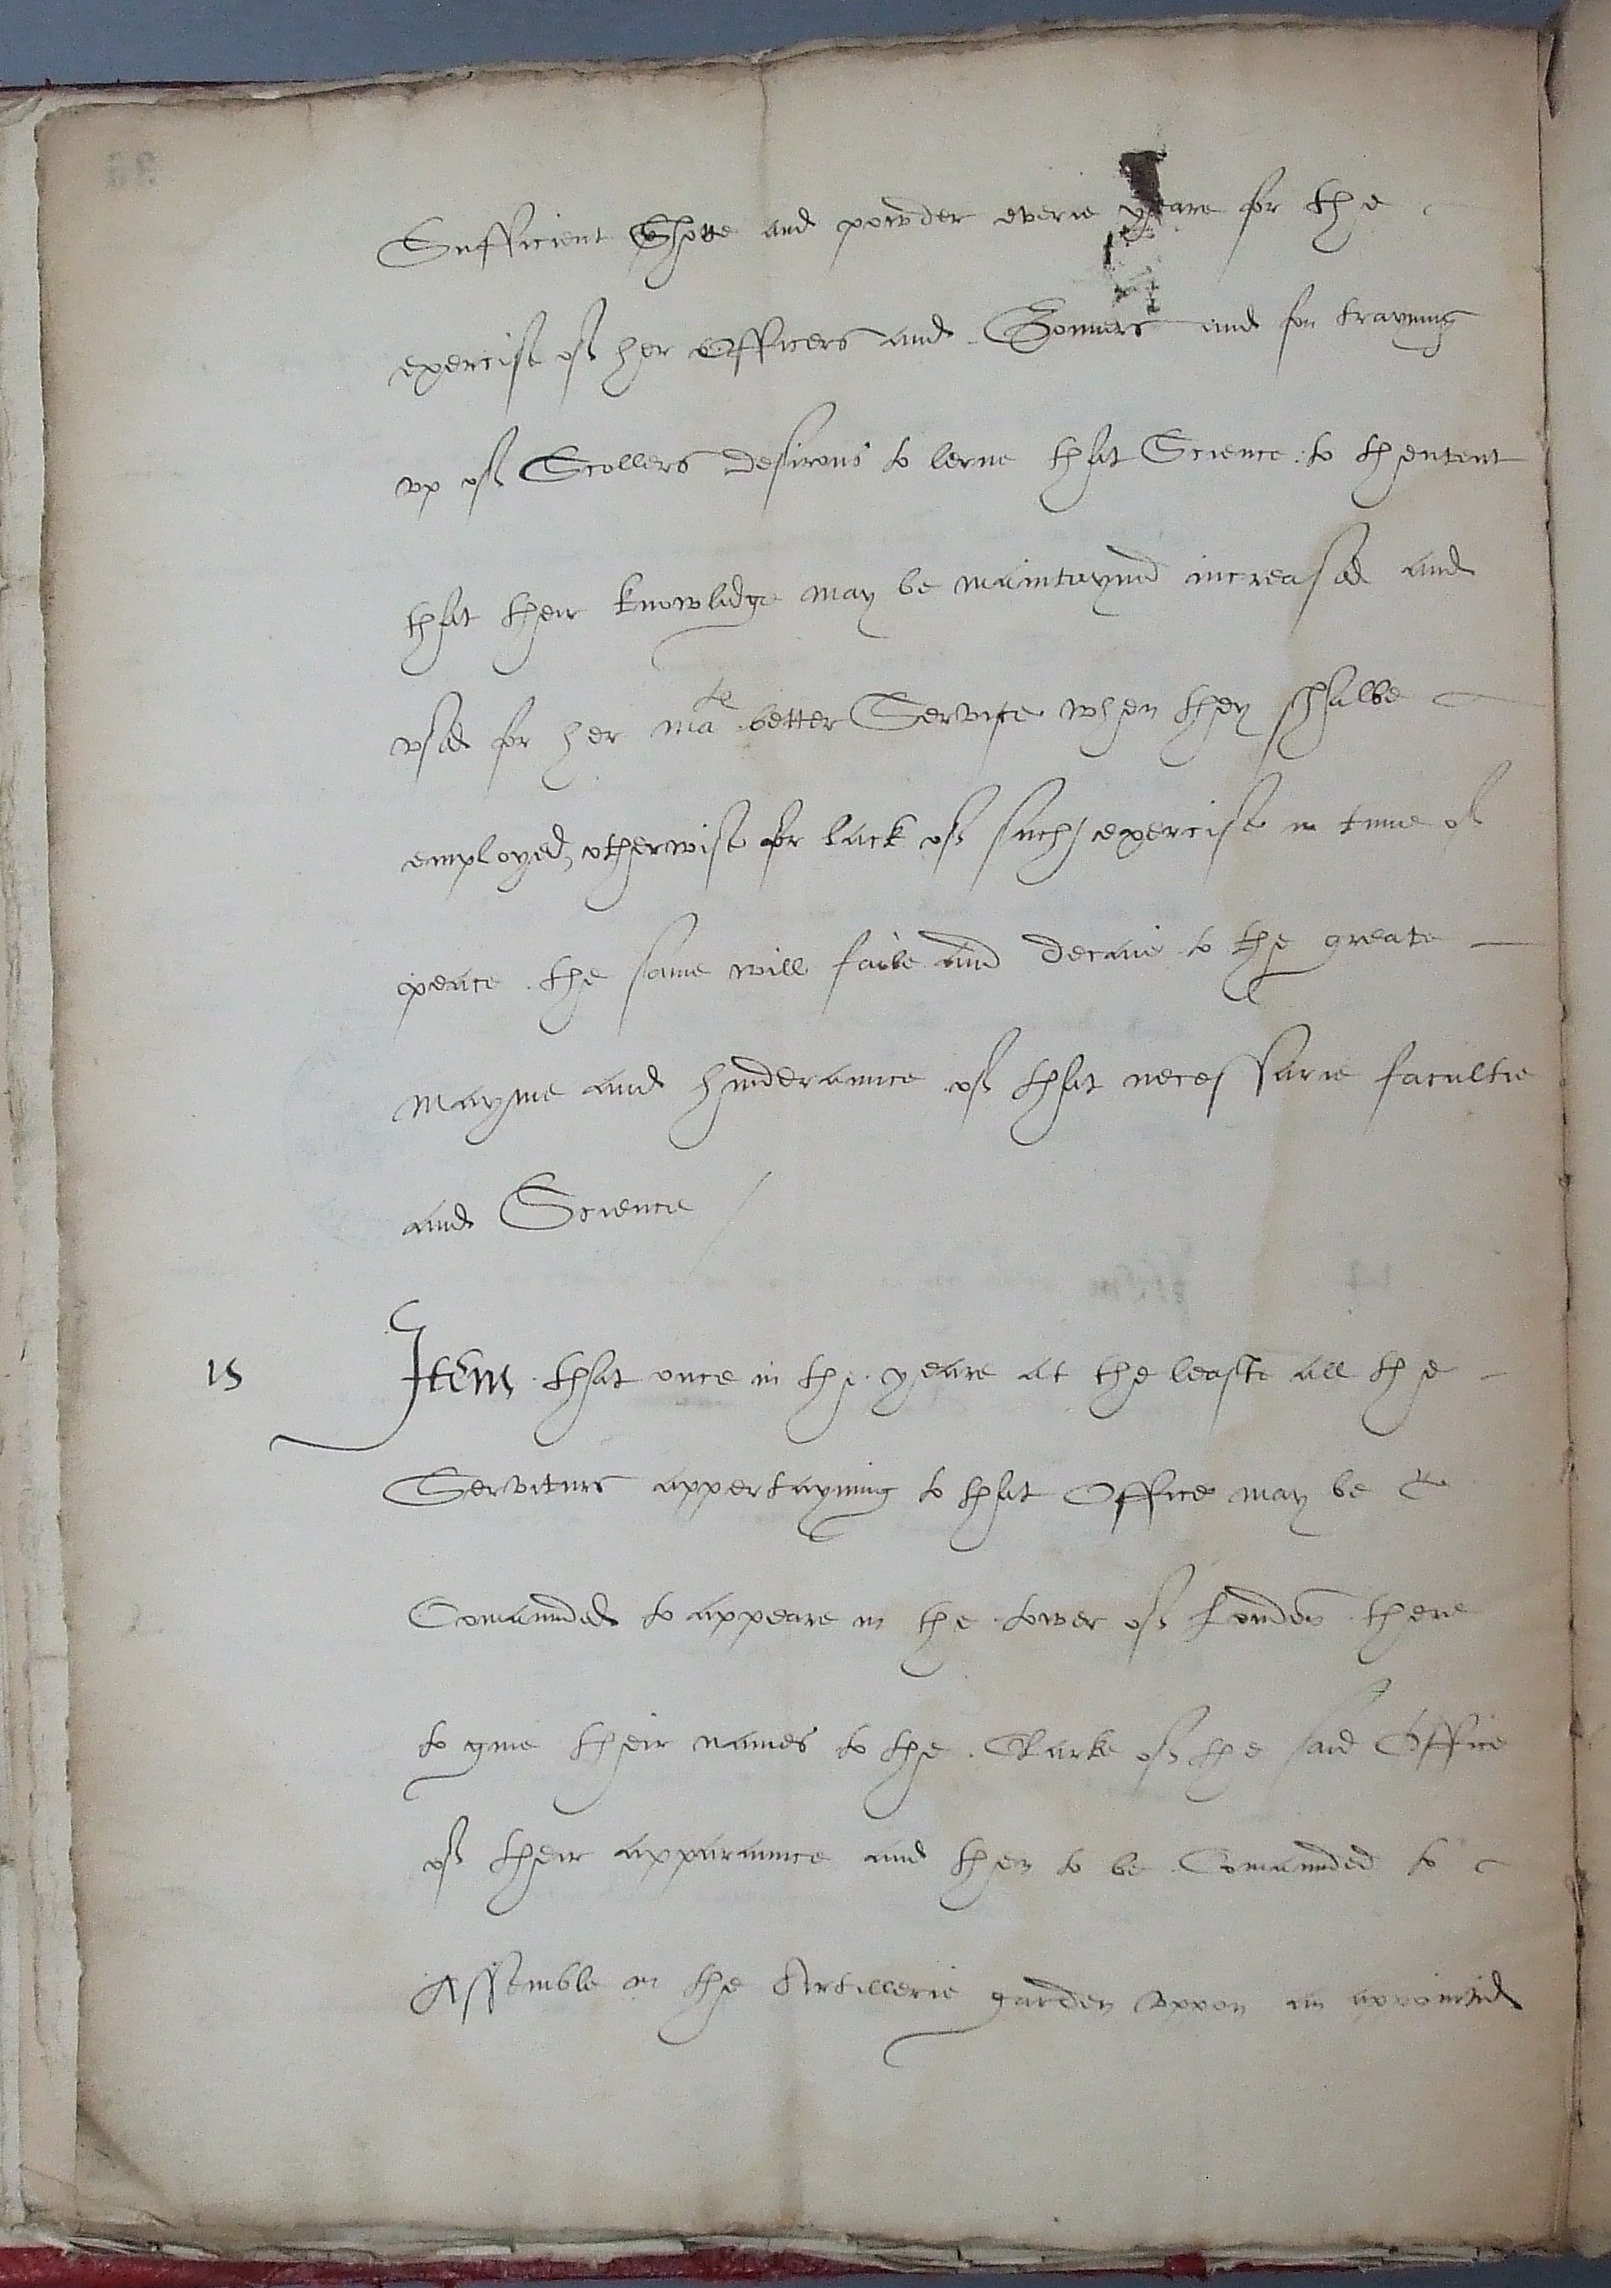 Sufficient Shotte and powder everie yeare for the
exercise of her Officers and Gonners and for trayning
vp of Scollers desirous to lerne that Science to thentent
that their knowledge may be maintayned increased and
vsed for her ma^te better Service when they shalbe
employed, otherwise for lack of such exercise in time of
peace the same will faile and decaie to the greate
mayme and hinderaunce of that necessarie facultie
and Science /
15 Item that once in the yeare at the leaste all the
Serviturs appertayning to that Office may be
Comaunded to appeare in the tower of London there
to giue their names to the Clarke of the said Office
of their apparaunce and then to be Comaunded to
Assemble in the Artillerie garden vppon an appointed